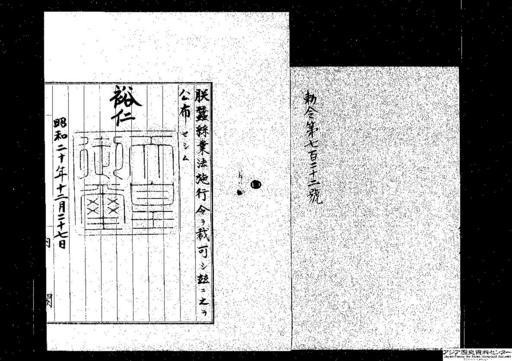 勅令第七百二十二號
朕蠶絲業法施行令ヲ裁可シ玆ニ之ヲ
公布セシム
裕仁
天皇御璽
昭和二十年十二月二十七日
内閣
アジア歴史資料センター